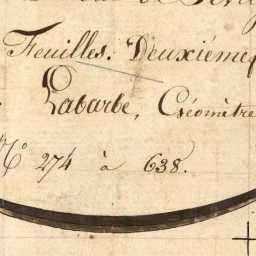 Feuilles. Deuxiéme
Labarbe, Géomètre
N.º 274 à 638.